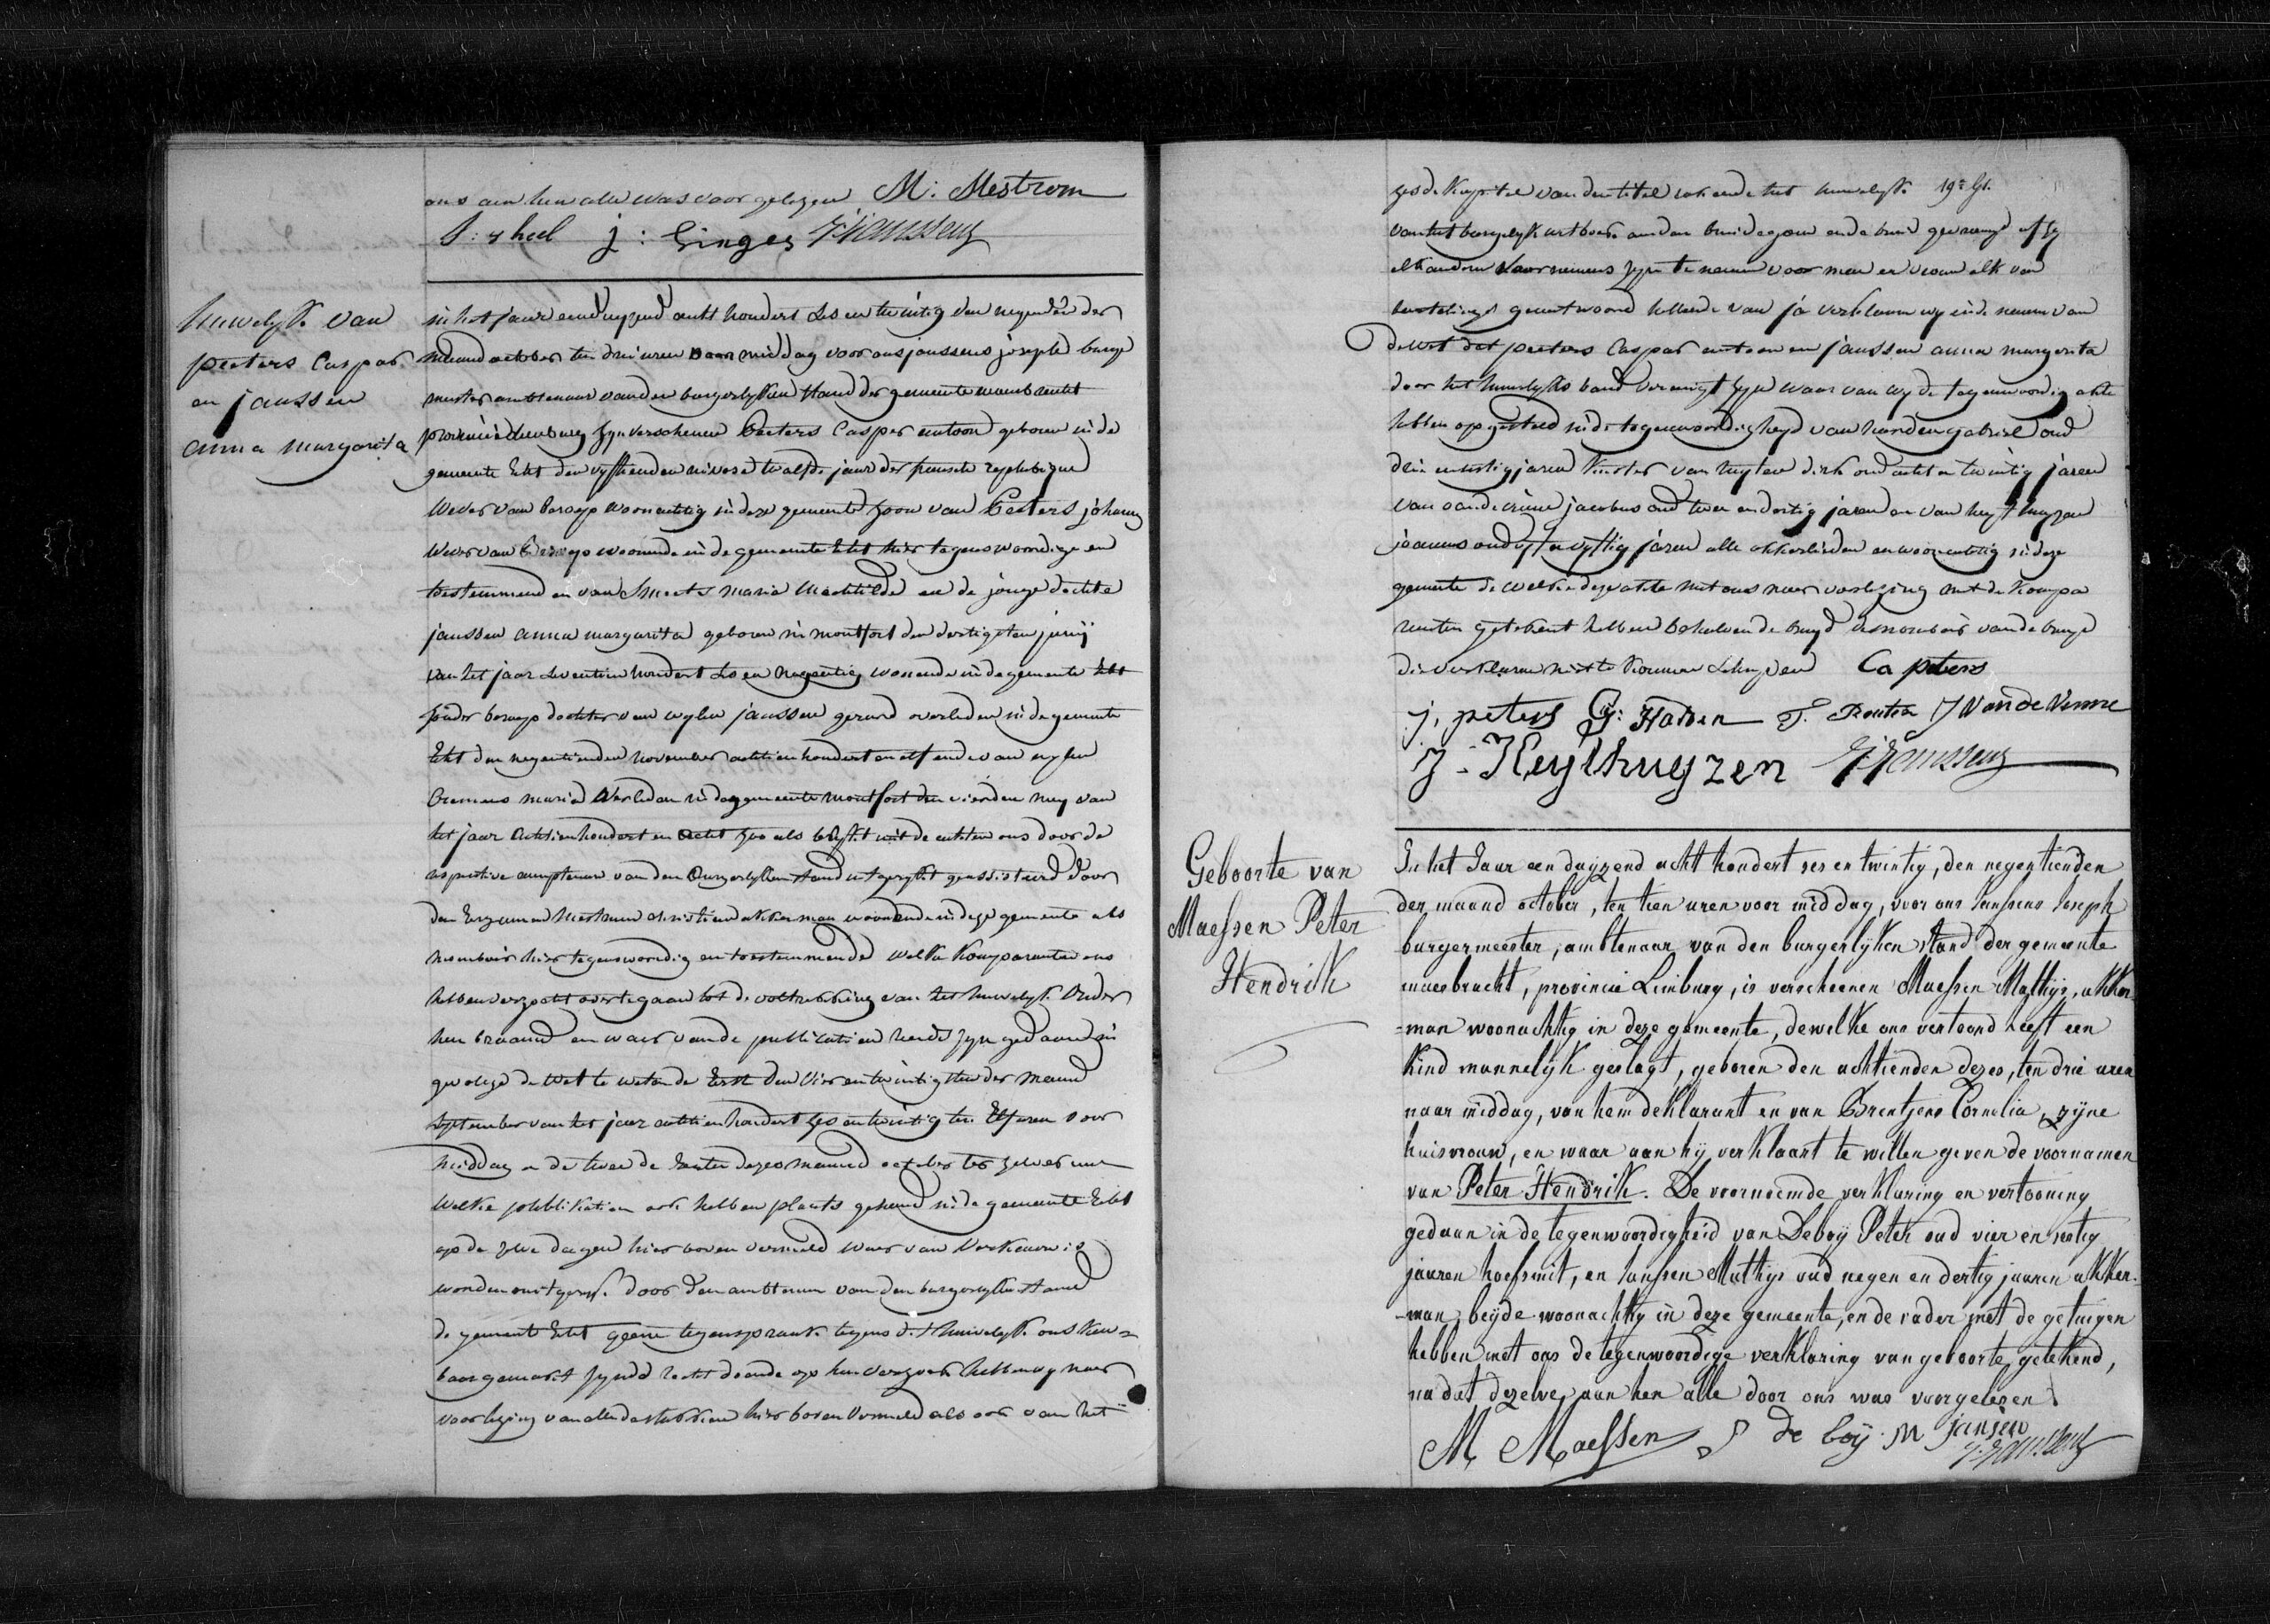 ons aen hen alle was voor gelezen M: Mestrom
S: Heel j: Linges JJanssens
huwelyk van
peeters Caspar
en janssen
anna margarita
in het jaar eenduyzend acht hondert ses en twintig den negenden der
maand october ten drie uren naar middag voor ons janssens joseph burge
meester ambtenaar van den burgerlyken stand der gemeente maesbracht
provincie Limburg zyn verschenen Peeters Caspar antoon geboren in de
gemeente Echt den vyftienden nivose twalfde jaar der fransche republique
wever van beroep woonachtig in deze gemeente zoon van Peeters johannes
wever van beroep woonende in de gemeente Echt hier tegenswoordige en
toestemmend en van Smeets maria Mechtilde en de jonge dochter
janssen anna margarita geboren in montfort den dertigsten juny
van het jaar seventien hondert ses en negentig wonende in de gemeente Echt
zonder beroep dochter van wylen janssen gerard overleden in de gemeente
Echt den negentienden november achtien hondert en elf ende van wylen
maria overleden in de gemeente montfort den vierden mey van
het jaar achtien hondert en acht zoo als blykt uit de acten ons door de
respective amptenaren van den burgerlyken stand uitgereykt geassisteerd door
den Mestrum christiaen akkerman woonende in deze gemeente als
hier tegenswoordig en toestemmende welke komparanten ons
hebben verzocht overtegaan tot de voltrekking van het huwelyk onder
hen beraamd en waar van de publicatien reeds zyn gedaan in
gevolge de wet te weten de Erste den vier en twintigsten der maand
september van het jaar achtien hondert zes en twintig ten Elf uren voor
middag en de tweede den Eersten dezes maand october ter zelver uur
welke publikatien ook hebben plaats gehend in de gemeente Echt
op de zelve dagen hier boven vermeld waar van
worden door den ambtenaar van den burgerlyken stand
de gemeente Echt geene tegenspraak tegens dit huwelyk ons ken-
baar gemaakt zynde recht doende op hun verzoek hebben wy naar
voorlezing van alle de stukken hier boven vermeld als ook van het
zesde Kapitel van den titel rakende het huwelyk
van het burgelyk wetboek aen den bruidegom ende bruid gevraagd of zy
elkanderen voornemens zyn te nemen voor man en vrouw elk van
geantwoord hebbende van ja verklaren wy in de naam van
de wet dat peeters Caspar antoon en janssen anna margarita
door het huwelyks band vereenigt zyn waar van wy de tegenwoordig akte
hebben opgesteld in de tegenwoordigheyd van handen gabriel oud
drie en sestig jaren koster van dirk oud acht en twintig jaren
van de venne jacobus oud twee en dertig jaren en van heythuyzen
joannes oud vyf en vyftig jaren alle akkerlieden en woonachtig in deze
gemeente de welke deze akte met ons naar voorlezing met de kompa
ranten getekent hebben behalven de bruyd van de bruyd
die verklaren niet te konnen schryven Ca peters
j. peters G: Haden J Van de Venne
J. Heythuyzen JJanssens
Geboorte van
Maessen Peter
Hendrik
In het Jaar een duyzend acht hondert ses en twintig, den negentienden
der maand october, ten tien uren voor middag, voor ons Janssens Joseph
burgermeester, ambtenaar van den burgerlyken stand der gemeente
maesbracht, provincie Limburg, is verscheenen Maessen Mathys, akker-
-man woonachtig in deze gemeente, dewelke ons vertoond heeft een
kind mannelyk geslagt, geboren den achtienden dezes, ten drie uren
naar middag, van hem deklarant en van Brentjens Cornelia, zyne
huisvrouw, en waar aan hy verklaart te willen geven de voornamen
van Peter Hendrik. De voornoemde verklaring en vertooning
gedaan in de tegenwoordigheid van Deboy Peter oud vier en sestig
jaaren hoefsmit, en Janssen Mathys oud negen en dertig jaaren akker-
-man, beyde woonachtig in deze gemeente, en de vader met de getuigen
hebben met ons de tegenwoordige verklaring van geboorte getekend,
na dat dezelve aan hen alle door ons was voorgelezen.
M Maessen P de boÿ M jansen
J. Janssens